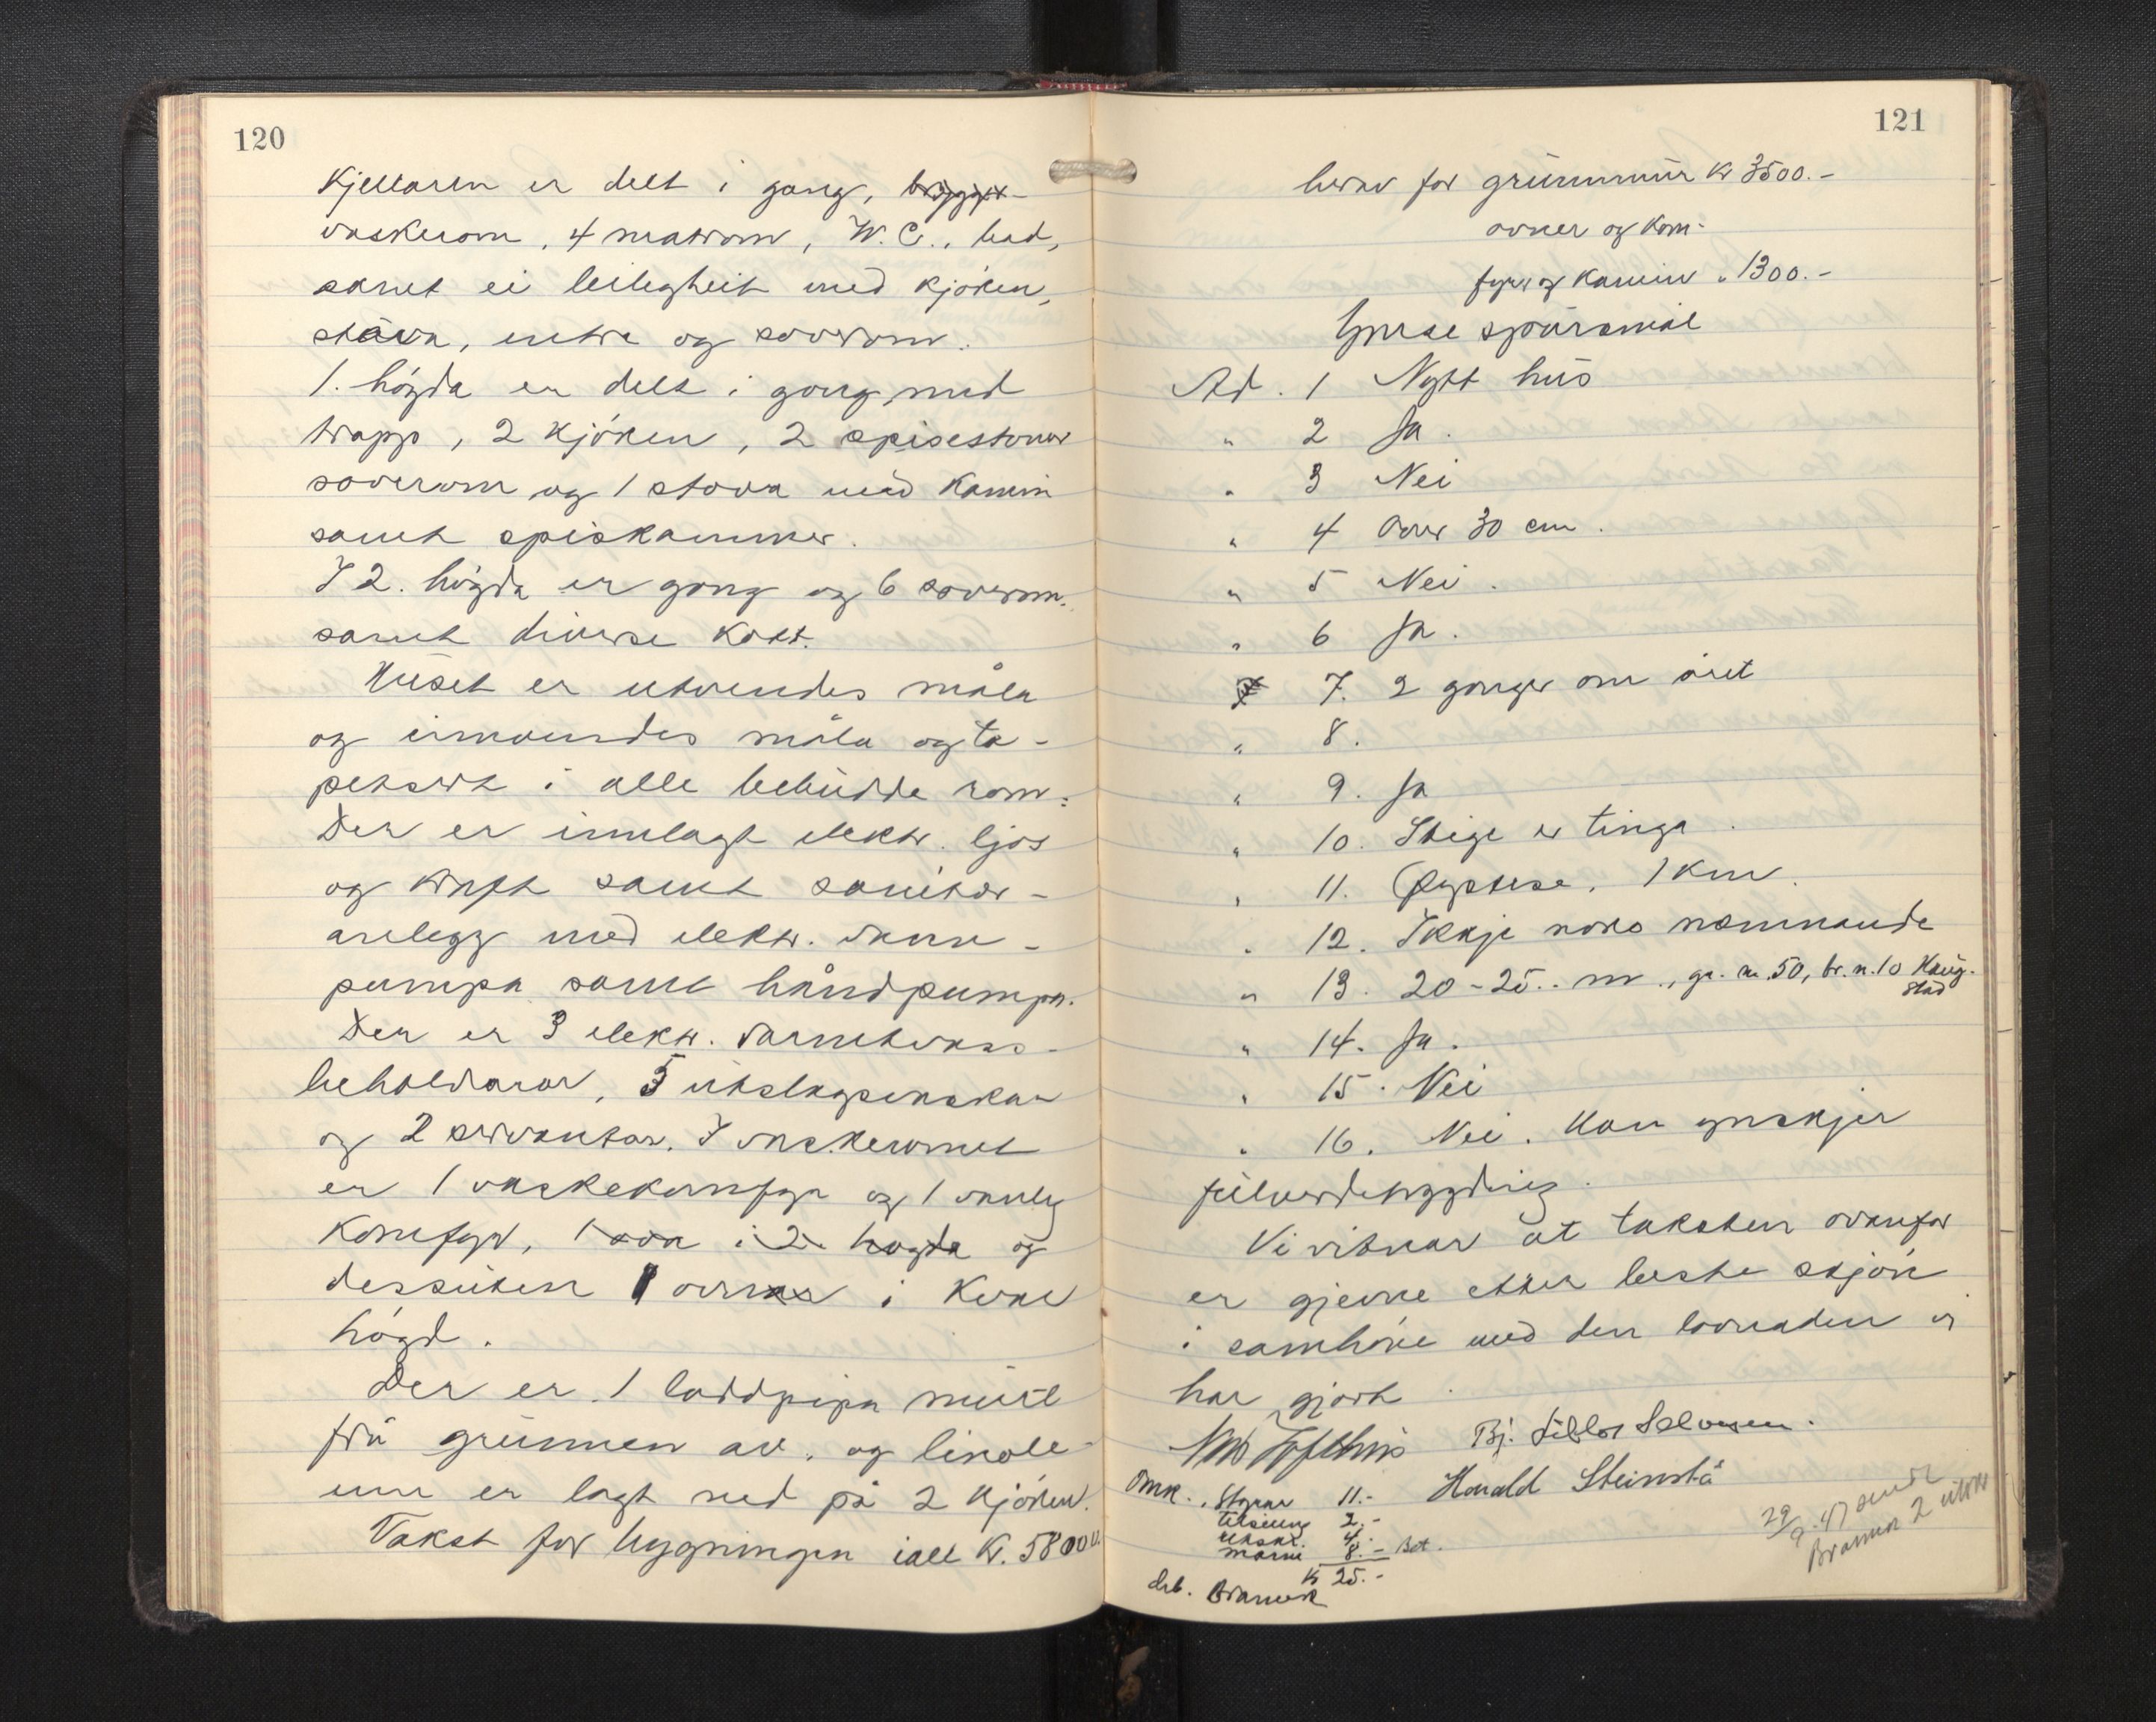 120
Kjellaren er delt i gang, bryggje-
vaskerom, 4 matrom, W.C., bad,
samt ei leilegheit med kjöken,
stova, entre og soverom.
1. högda er delt i gong med
trapp, 2 kjöken, 2 spisestover
soverom og 1 stova med kamin
samt spiskammer.
I 2. högda er gong og 6 soverom.
samt diverse kott.
Huset er utvendes måla
og innvendes måla og ta-
petsert i alle bebudde rom.
Der er innlagt elektr. ljos
og kraft samt sanitær-
anlegg med elektr. vann-
pumpa samt håndpumpa.
Der er 3 elektr. varmtvass-
beholdarar, 5 utslagsvaskar
og 2 servantar. I vaskeromet
er 1 vaskekomfyr og 1 vanleg
komfyr, 1 ovn i 2. högda og
dessuten 1 ovnar i kvar
högd.
Der er 1 loddpipa murt
frå grunnen av. og linole-
um er lagt ned på 2 kjöken.
Takst for bygningen ialt kr. 58000.
121
herav for grunnmur kr 3500.-
ovner og kom-
fyr og kamin " 1300.-
Ymse spursmål
Ad. 1 Nytt hus
" 2 Ja.
" 3 Nei
" 4 Over 30 cm.
" 5 Nei.
" 6 Ja.
" 7. 2 gonger om året
" 8.
" 9. Ja
" 10. Stige er tinga.
" 11. Öystese. 1 km.
" 12. Ikkje noko nemnande
" 13. 20-25. m., gr. n. 50, br. n. 10 Haug-
stad
" 14. Ja.
" 15. Nei
" 16. Nei. Han ynskjer
fullverdetrygding.
Vi vitnar at taksten ovanfor
er gjevne etter beste skjön
i samhöve med den lovnaden vi
har gjort.
Tofthus Bj. Salvesen.
Omk. Styrar 11.- Harald Steinstö
tilseing 2.-
utskr. 4.-
8.- Bet.
Kr 25.-
29/9.47 sendt
Brannk 2 utskr
Utb. Brannk